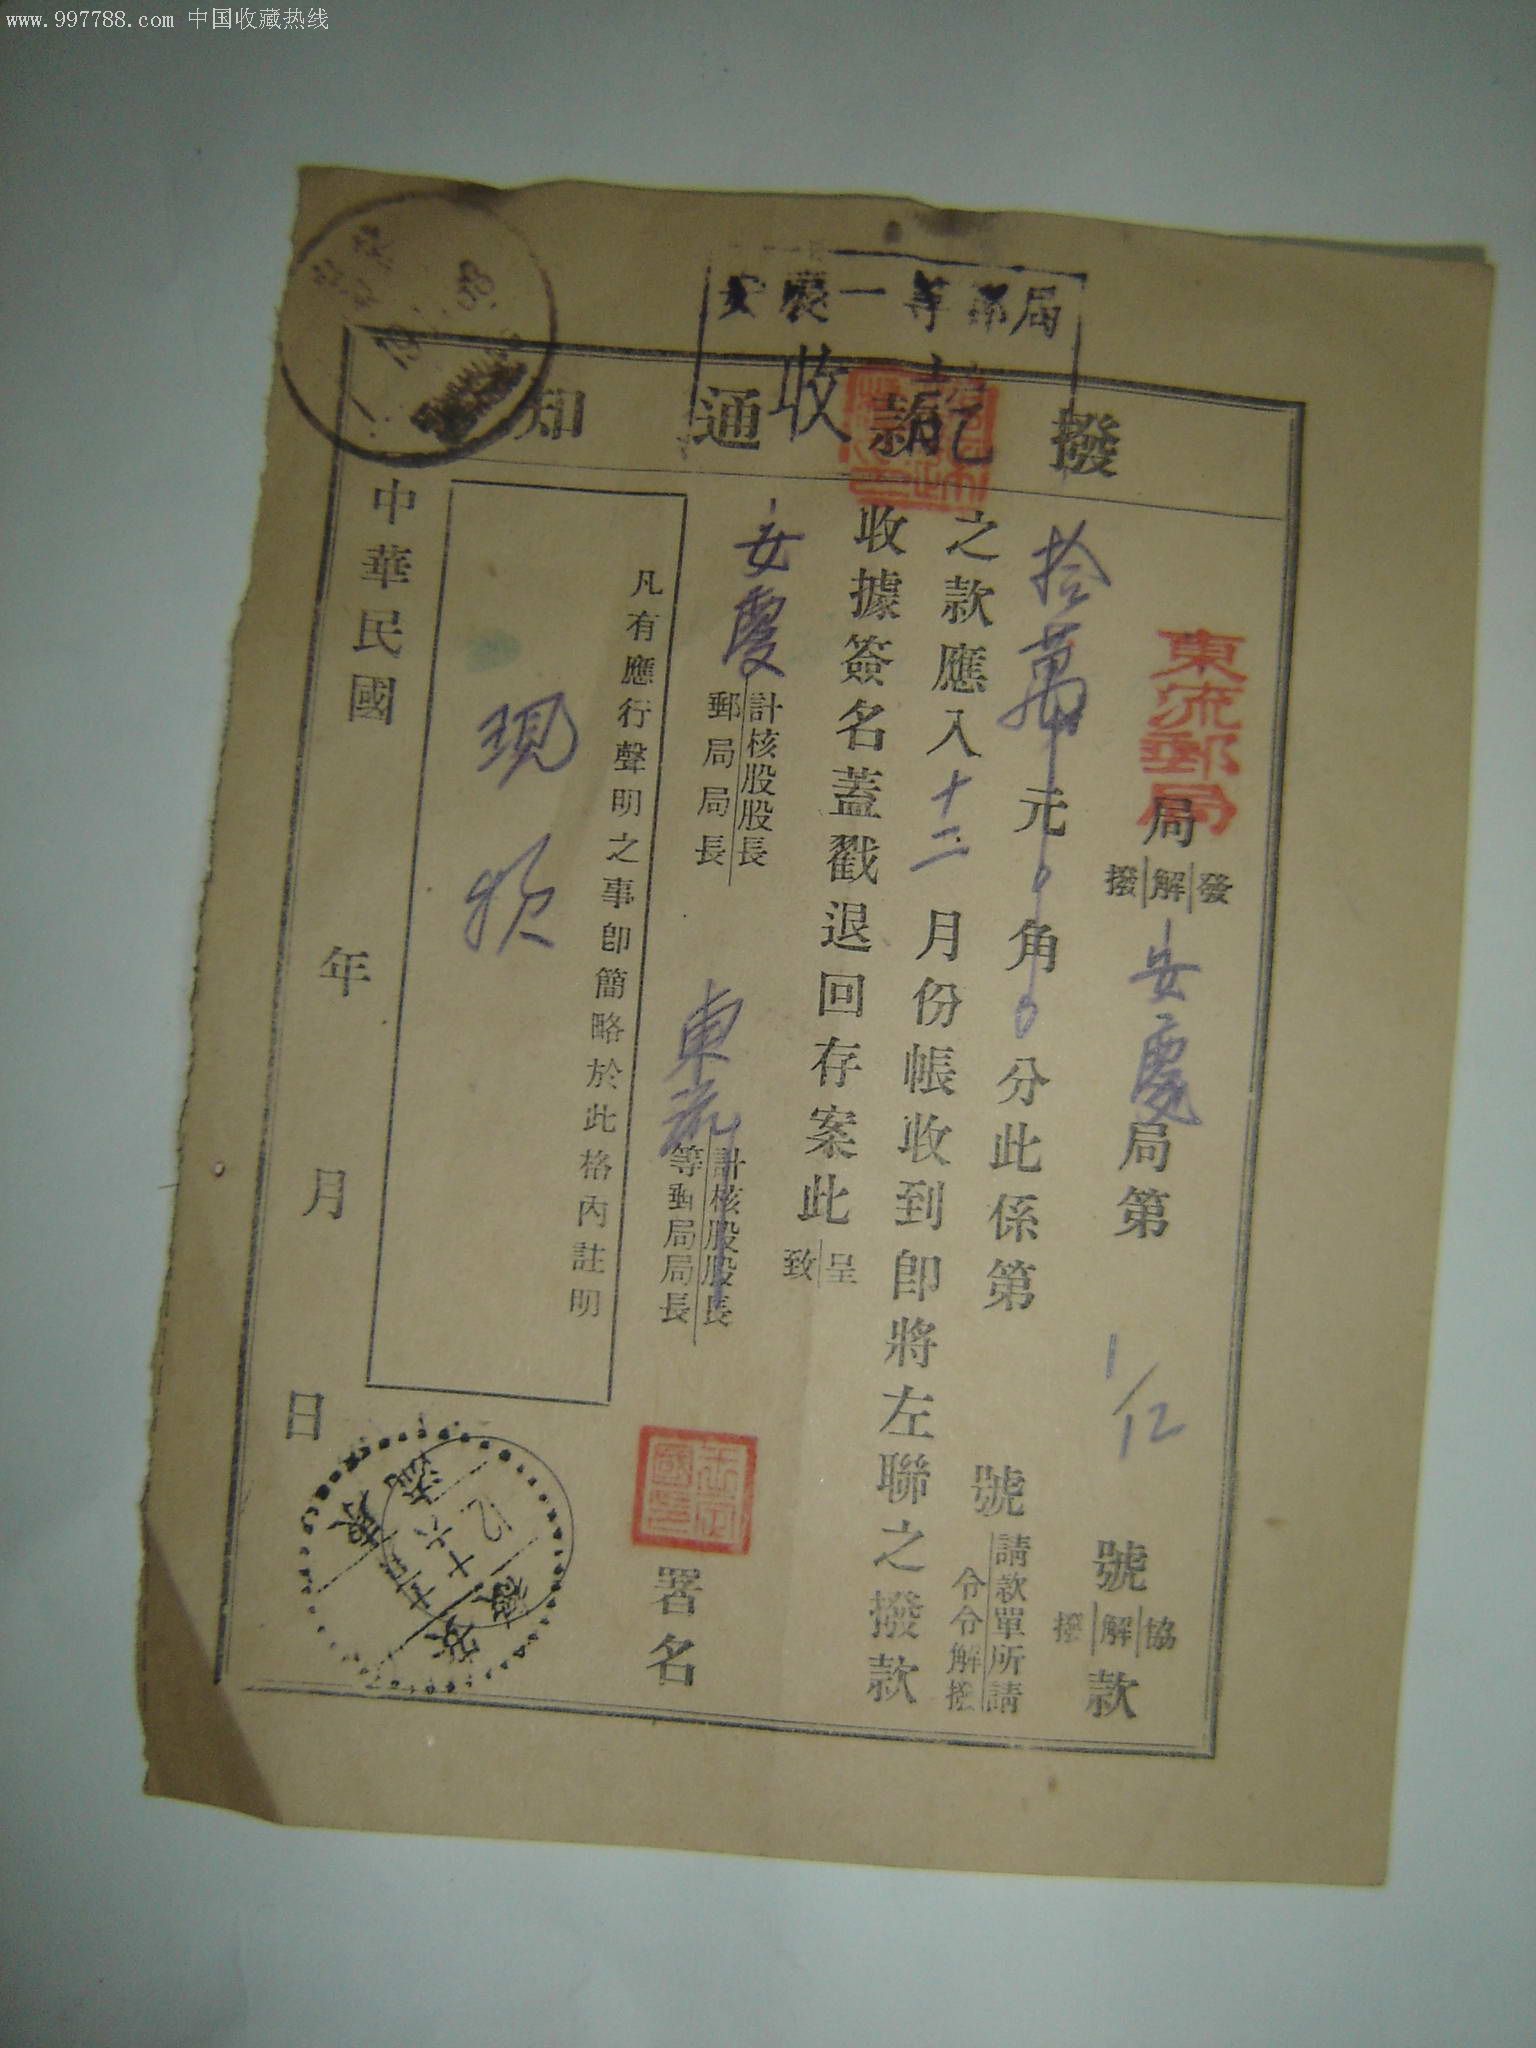 www.997788.com 中国收藏热线
安慶一等郵局
收訖
撥款通知
東流郵局
局 發解撥 安慶 局第 1/12 號 協解撥 款
拾萬 元 0 角 0 分此係第 號 請款單所請 令令解撥
之款應入 十二 月份帳收到即將左聯之撥款
收據簽名蓋戳退回存案此 呈致
安慶 計核股股長 郵局局長
東流 計核股股長 等郵局局長 署名
凡有應行聲明之事即簡略於此格內註明
現款
中華民國 年 月 日